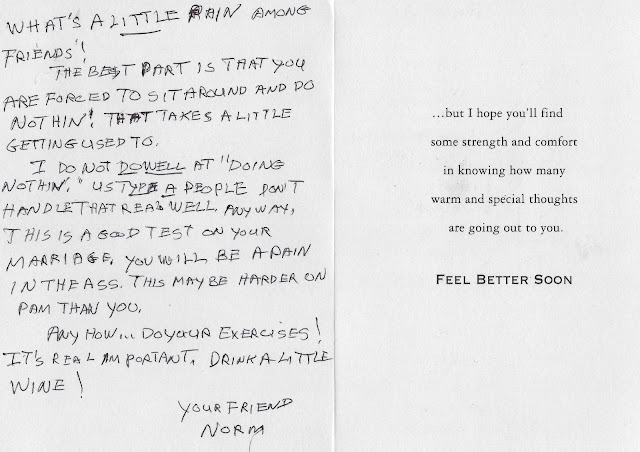 WHAT'S A LITTLE PAIN AMONG
FRIENDS!
THE BEST PART IS THAT YOU
ARE FORCED TO SIT AROUND AND DO
NOTHIN! THAT TAKES A LITTLE
GETTING USED TO.
I DO NOT DO WELL AT "DOING
NOTHIN." US TYPE A PEOPLE DON'T
HANDLE THAT REAL WELL. ANYWAY,
THIS IS A GOOD TEST ON YOUR
MARRIAGE, YOU WILL BE A PAIN
IN THE ASS. THIS MAY BE HARDER ON
PAM THAN YOU.
ANYHOW... DO YOUR EXERCISES!
IT'S REAL AMPORTANT. DRINK A LITTLE
WINE!
YOUR FRIEND
NORM
...but I hope you'll find
some strength and comfort
in knowing how many
warm and special thoughts
are going out to you.
FEEL BETTER SOON